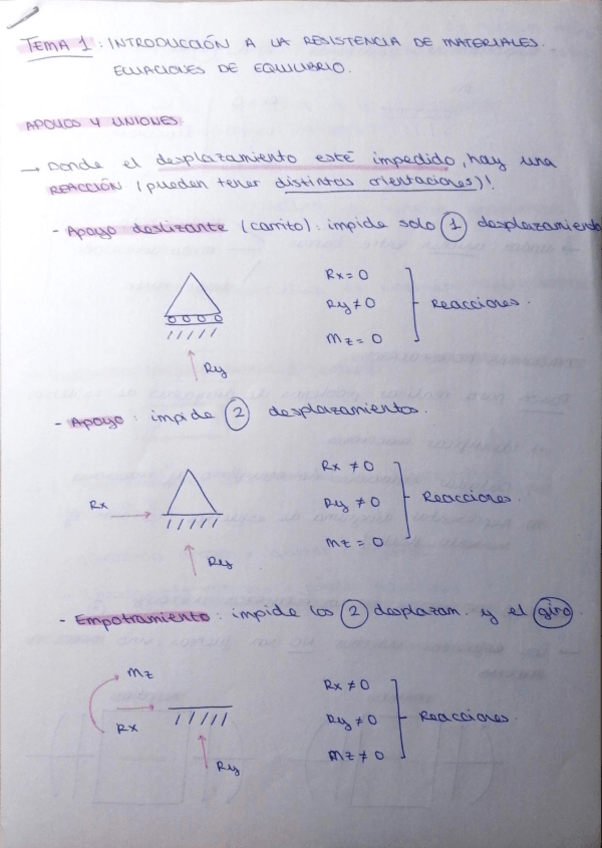 TEMA 1: INTRODUCCIÓN A LA RESISTENCIA DE MATERIALES.
ECUACIONES DE EQUILIBRIO.
APOYOS Y UNIONES
→ Donde el desplazamiento esté impedido, hay una
REACCIÓN (pueden tener distintas orientaciones)!
- Apoyo deslizante (carrito): impide solo 1 desplazamiento
Rx = 0
Ry ≠ 0
Reacciones.
Mz = 0
Ry
- Apoyo: impide 2 desplazamientos.
Rx ≠ 0
Rx
Ry ≠ 0
Reacciones.
Mz = 0
Ry
- Empotramiento: impide los 2 desplazam. y el giro.
Mz
Rx ≠ 0
Rx
Ry ≠ 0
Reacciones.
Ry
Mz ≠ 0